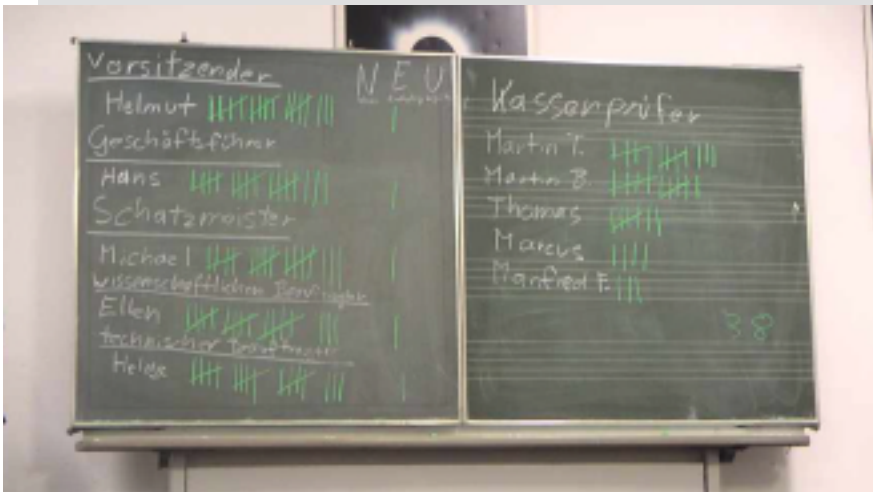 Vorsitzender
N E U
Helmut
Geschäftsführer
Hans
Schatzmeister
Michael
wissenschaftlicher Beauftragter
Ellen
technischer Beauftragter
Helge
Kassenprüfer
Martin T.
Martin B.
Thomas
Marcus
Manfred F.
38